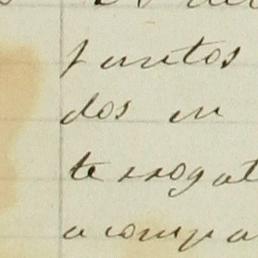 juntos
dos en
terrogat
acompa